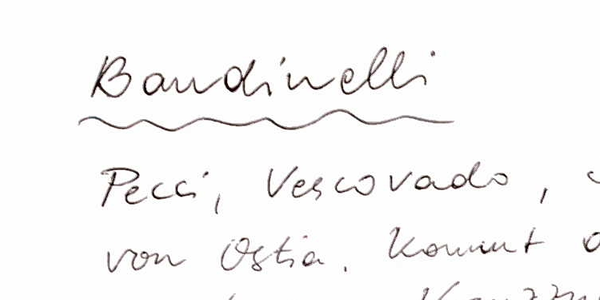 Bandinelli
Pecci, Vescovado,
von Ostia. Kommt